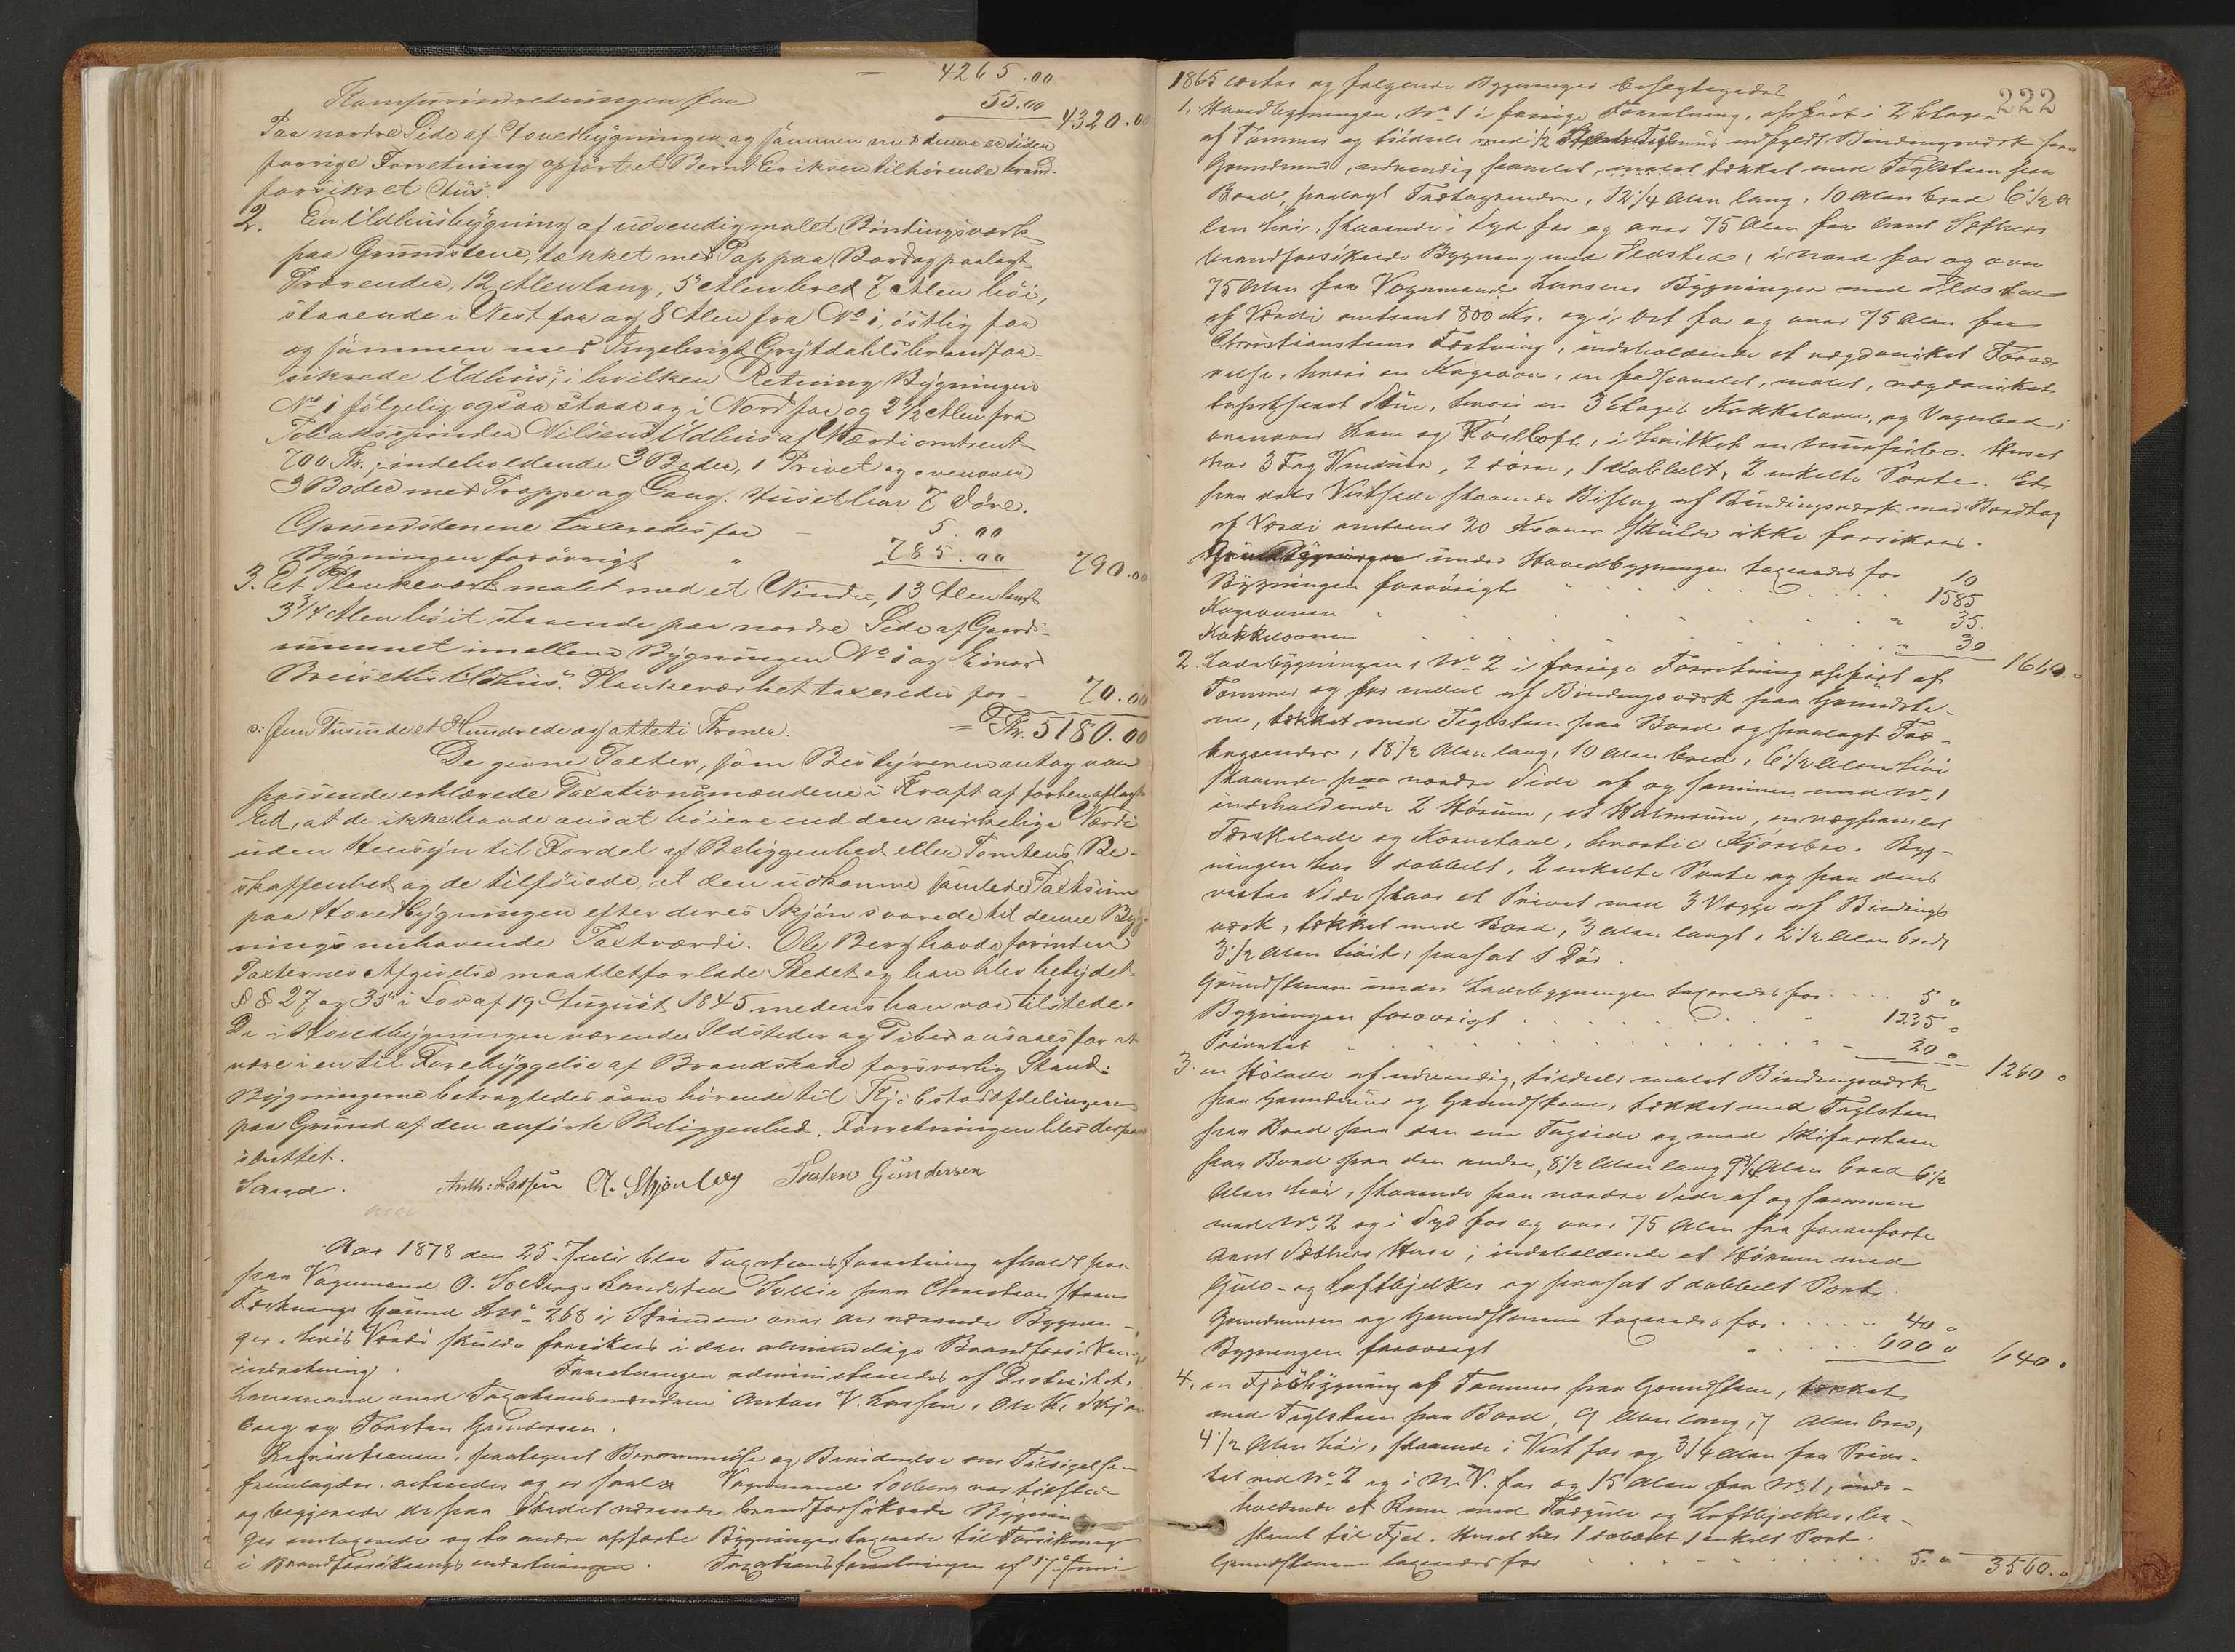 4265.00
Kamferindretningen for 55.00 4320.00
Paa nordre Side af Hovedbygningen og sammen med denne er siden
forrige Forretning opført et Bernt Eriksen tilhørende brand-
forsikret Hus.
2. En Udhusbygning af udvendig malet Bindingsværk
paa Grundstene, tækket med Pap paa Bord og paalagt
Trærender, 12 Alen lang, 5 Alen bred 7 Alen høi,
staaende i Vest for og 8 Alen fra No 1, østlig for
og sammen med Ingebrigt Grytdahls brandfor-
sikrede Udhus, i hvilken Retning Bygningen
No 1 følgelig ogsaa staar og i Nord for og 2 1/2 Alen fra
Tobaksspinder Nilsens Udhus af Værdi omtrent
700 Kr., indeholdende 3 Boder, 1 Privet og ovenover
3 Boder med Trappe og Gang. Huset har 7 Døre.
Grundstenene taxeredes for - 5.00
Bygningen forøvrigt " 785.00 790.00
3. Et Plankeværk malet med et Vindu, 13 Alen langt
3 3/4 Alen høit staaende paa nordre Side af Gaards-
rummet imellem Bygningen No 1 og Einar
Breiseths Udhus. Plankeværket taxeredes for - 70.00
o: fem Tusinde et Hundrede og otteti Kroner. = Kr. 5180.00
De givne Taxter, som Bestyreren antog var
passende erklærede Taxationsmændene i Kraft af forhen aflagt
Ed, at de ikke havde ansat høiere end den virkelige Værdi
uden Hensyn til Fordel af Beliggenhed eller Tomtens Be-
skaffenhed og de tilføiede at den udkomne samlede Taxtsum
paa Hovedbygningen efter deres Skjøn svarede til denne Byg-
nings nuhavende Taxtværdi. Ole Berg havde forinden
Taxternes Afgivelse maattet forlade Stedet og han blev betydet
§§ 27 og 35 i Lov af 19 August 1845 medens han var tilstede.
De i Hovedbygningen værende Ildsteder og Piber ansaaes for at
være i en til Forebyggelse af Brandskade forsvarlig Stand.
Bygningerne betragtedes som hørende til Kjøbstadafdelingen
paa Grund af den anførte Beliggenhed. Forretningen blev derpaa
sluttet.
Anth: Lassen O. K. Skjønberg Torsten Gundersen
Aar 1878 den 25 Juli blev Taxationsforretning afholdt paa
Vognmand O. Solbergs Sollie paa Christiansstens
Fæstnings Grund Lno 268 i Strinden over der værende Bygnin-
ger, hvis Værdi skulde forsikres i den almindelige Brandforsikrings
indretning. Forretningen administreredes af Distriktets
Lensmand med Taxationsmændene Anton V. Lassen, Ole K. Skjøn-
berg og Torsten Gundersen.
Rekvisitionen, paategnet Berammelse og Bevidnelse om Tilsigelse
fremlagdes, oplæstes og er saal: Vognmand Solberg var tilstede
og begjærede de paa Stedet værende brandforsikrede Bygnin-
ger omtaxerede og to andre opførte Bygninger taxerede til Forsikring
i Brandforsikringsindretningen. Taxationsforretningen af 17 Juni
222
1865 læstes og følgende Bygninger besigtigedes
1. Hovedbygningen, No 1 i forrige Forretning, opført i 2 Etager
af Tømmer og tildels med 1/2 Stens Teglmur udfyldt Bindingsværk paa
Grundmur, udvendig panelet, malet tækket med Teglsten paa
Bord, paalagt Trætagrender, 12 1/4 Alen lang, 10 Alen bred 6 1/2 A-
len høi, staaende i Syd for og over 75 Alen fra Arnt Sæthers
brandforsikrede Bygning med Ildsted, i Nord for og over
75 Alen fra Vognmand Larsens Bygninger med Ildsted
af Værdi omtrent 800 Kr. og i Øst for og over 75 Alen fra
Christianstens Fæstning, indeholdende et vægpanelet Forvæ-
relse, hvori en Kogeovn, en panelet, malet,
Stue, hvori en 3 Etages Kakkelovn, og
ovenover Kam og Kvistloft, i hvilket en Huset
har 3 Fag Vinduer, 2 Døre, 1 dobbelt, 2 enkelte Porte. Et
paa dets Vestside staaende Bislag af Bindingsværk med Bordtag
af Værdi omtrent 20 Kroner skulde ikke forsikres.
under Hovedbygningen taxeredes for 10
Bygningen forøvrigt 1585
Kogeovnen " 35.
Kakkelovnen " 30. 1660.
2. Ladebygningen, No 2 i forrige Forretning opført af
Tømmer og for en del af Bindingsværk paa Grundste-
ne, tækket med Teglsten paa Bord og paalagt Træ-
tagrender, 18 1/2 Alen lang, 10 Alen bred, 6 1/2 Alen høi
staaende paa nordre Side af og sammen med No 1
indeholdende 2 Hørum, et Halmrum, en vægpanelet
Tærskelade og Kornstave, hvortil Kjørebro. Byg-
ningen har 1 dobbelt, 2 enkelte Porte og paa dens
vestre Side staar et Privet med 3 Vægge af Bindings
værk, tækket med Bord, 3 Alen langt, 2 1/2 Alen bredt
3 1/2 Alen høit, paasat 1 Dør.
Grundstenene under Ladebygningen taxeredes for 5
Bygningen forøvrigt 1235
Privetet 20 1260
3. en Hølade af udvendig, tildels malet Bindingsværk
paa Grundmur og Grundstene, tækket med Teglsten
paa Bord paa den ene Tagside og med Skifersten
paa Bord paa den anden, 8 1/2 Alen lang 9 3/4 Alen bred 6 1/2
Alen høi, staaende paa nordre Side af og sammen
med No 2 og i Syd for og over 75 Alen fra foranførte
Arnt Sæthers Huse; indeholdende et Hørum med
Gulv- og Loftbjelker og paasat 1 dobbelt Port.
Grundmuren og Grundstenene taxeredes for 40
Bygningen forøvrigt 600 640.
4. en Fjøsbygning af Tømmer paa Grundstene, tækket
med Teglsten paa Bord, 9 Alen lang, 7 Alen bred,
4 1/2 Alen høi, staaende i Vest for og 3/4 Alen fra Prive-
tet ved No 2 og i N.V. for og 15 Alen fra No 1, inde-
holdende et Rum med Trægulv og Loftbjelker, be-
stemt til Fjøs. Huset har 1 dobbelt 1 enkelt Port.
Grundstenene taxeredes for 5. 3560.